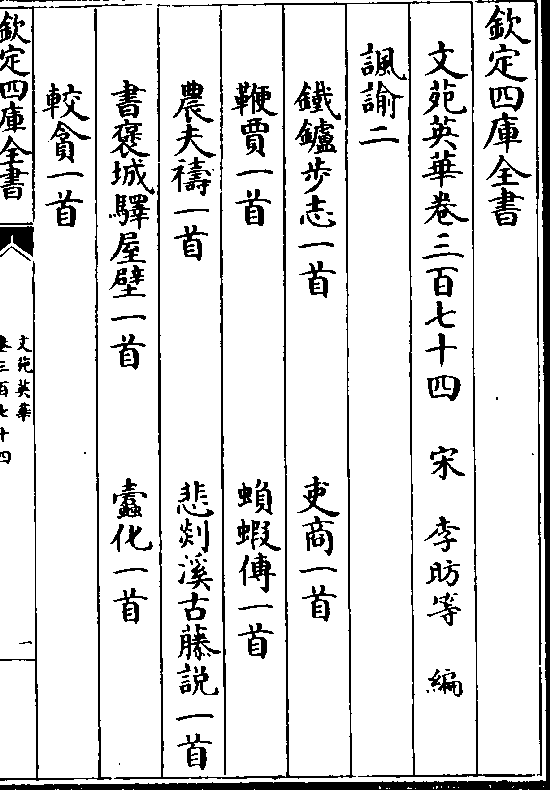 欽定四庫全書
文苑英華卷三百七十四　宋　李昉等　編
諷諭二
鐵鑪步志一首　吏商一首
鞭賈一首　蝜蝂傳一首
農夫禱一首　悲剡溪古藤說一首
書褒城驛屋壁一首　蠹化一首
較貪一首
欽定四庫全書
文苑英華
卷三百七十四
一